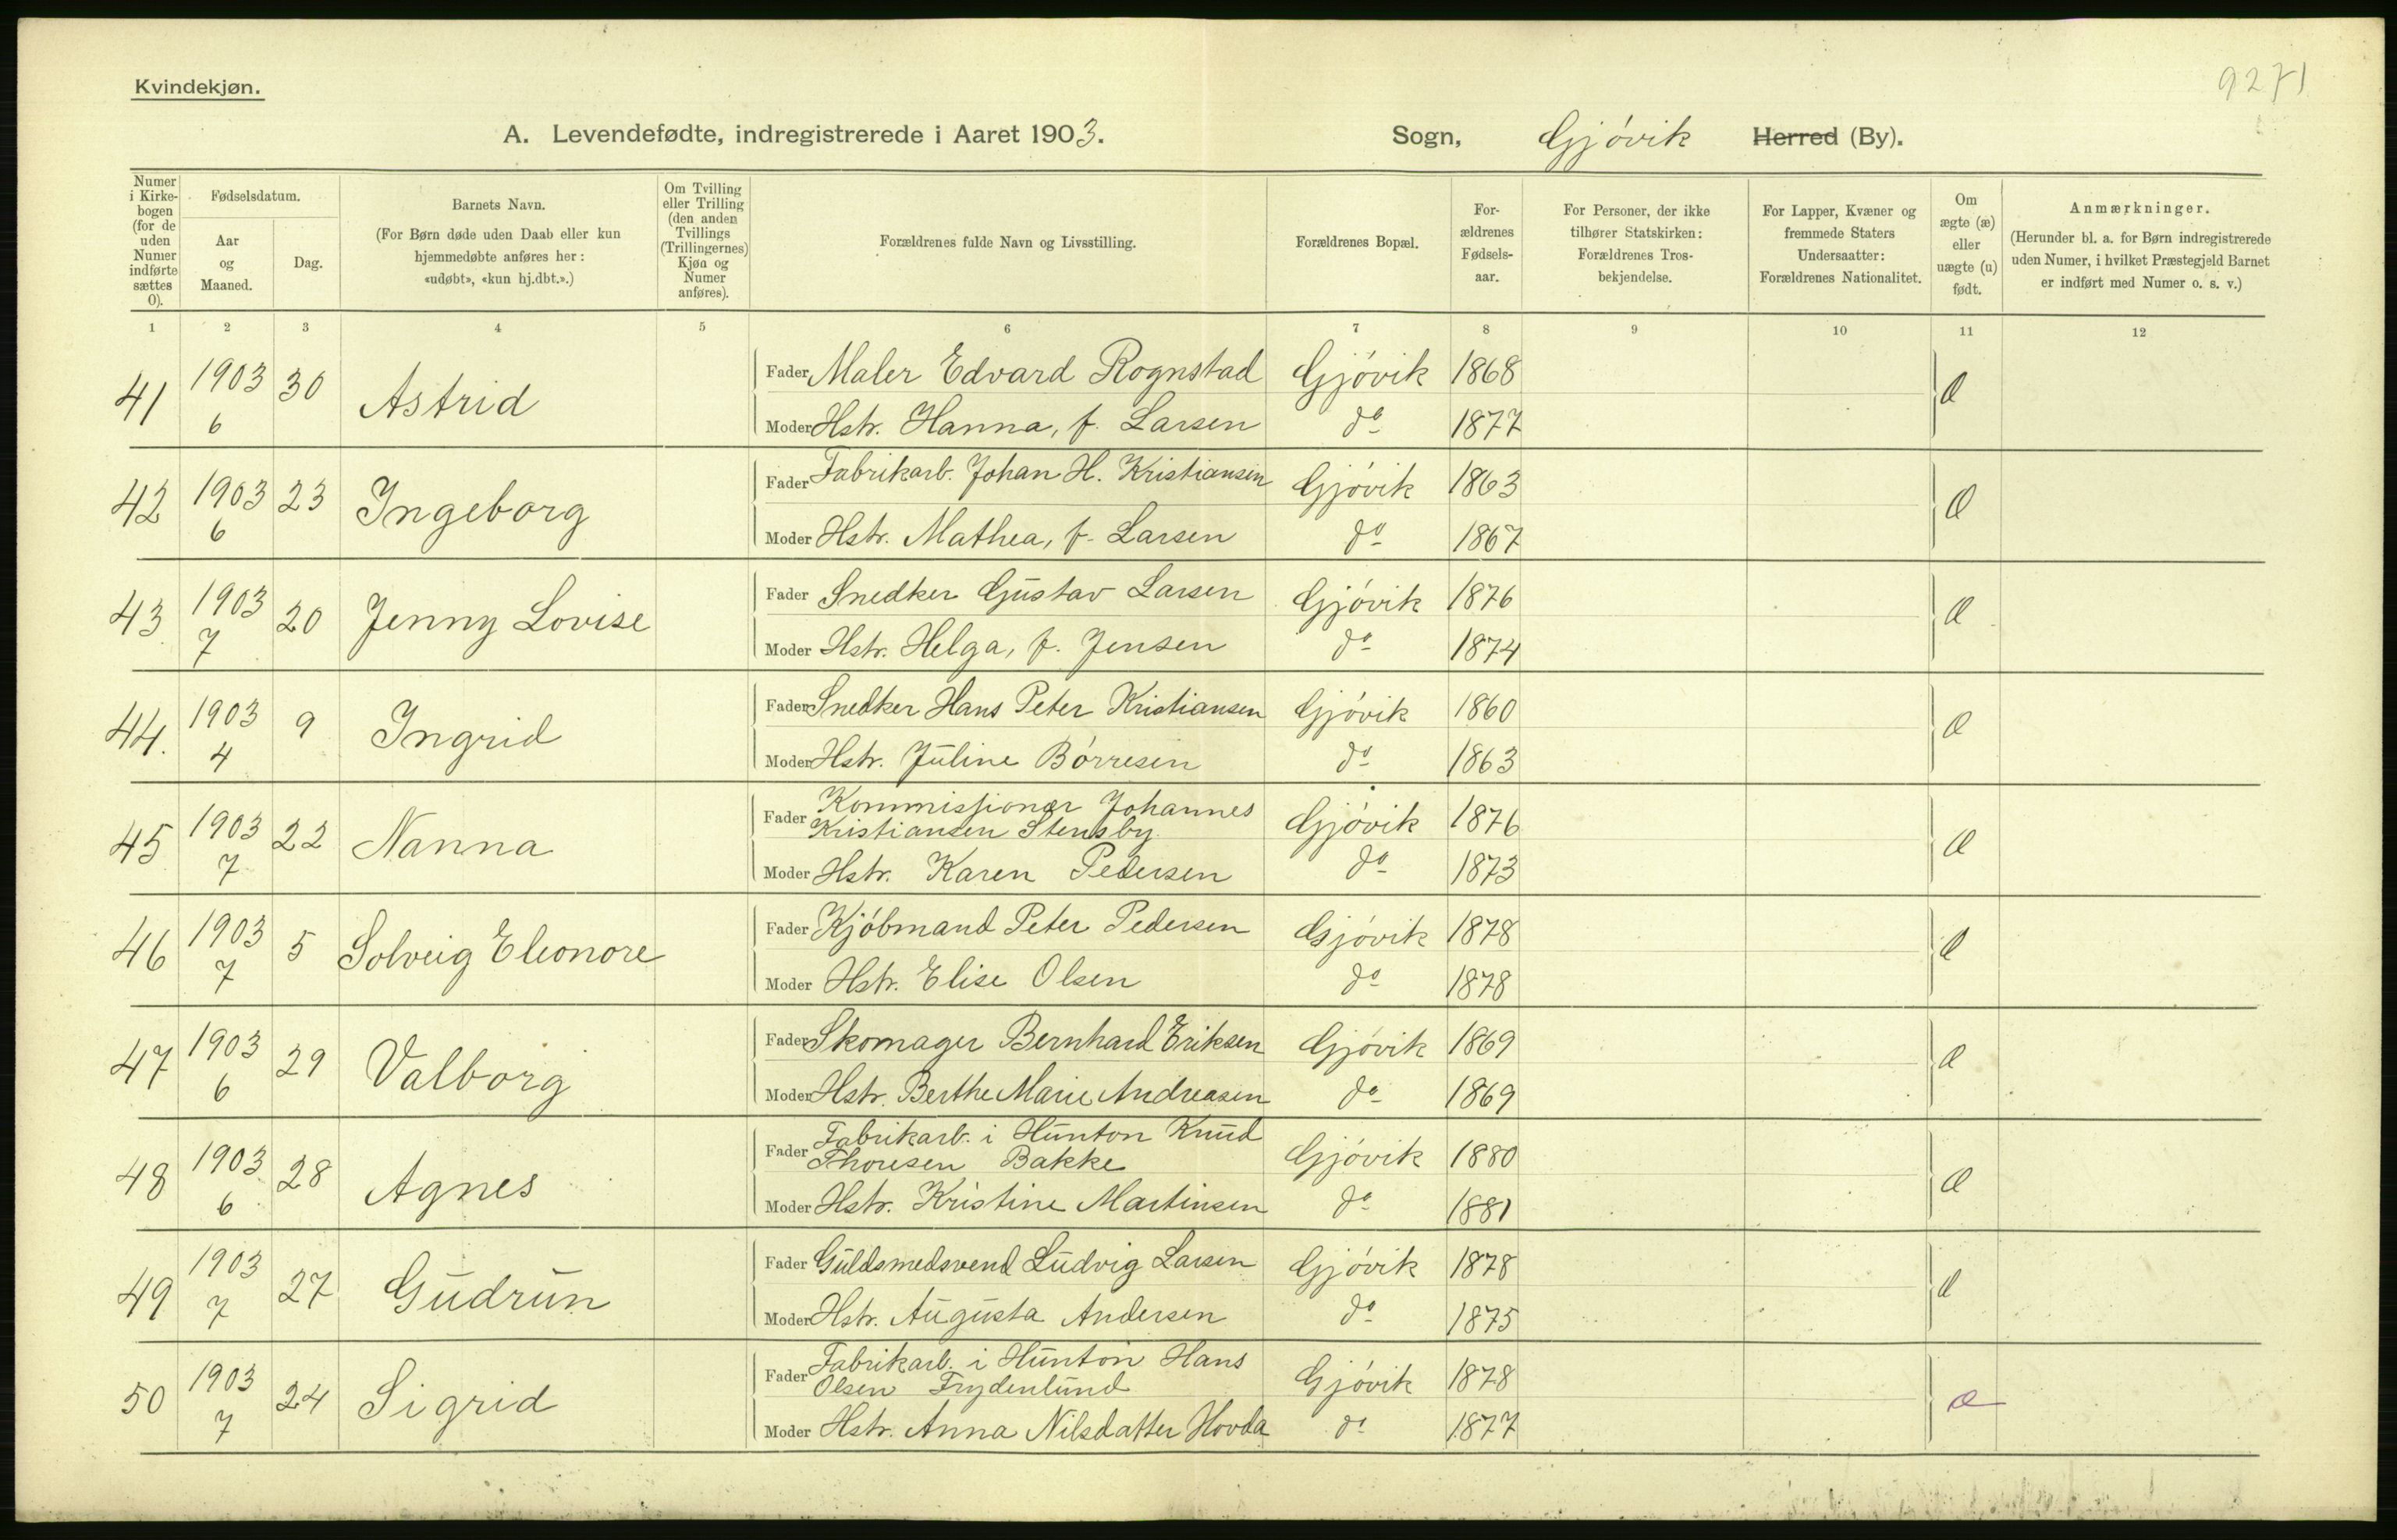 Kvindekjøn.
9271
A. Levendefødte, indregistrerede i Aaret 1903. Sogn, Gjövik Herred (By).
Numer i Kirkebogen (for de uden Numer indførte sættes 0).
Fødselsdatum.
Aar og Maaned.
Dag.
Barnets Navn.
(For Børn døde uden Daab eller kun hjemmedøbte anføres her: «udøbt», «kun hj.dbt.».)
Om Tvilling eller Trilling (den anden Tvillings (Trillingernes) Kjøn og Numer anføres).
Forældrenes fulde Navn og Livsstilling.
Forældrenes Bopæl.
Forældrenes Fødselsaar.
For Personer, der ikke tilhører Statskirken: Forældrenes Trosbekjendelse.
For Lapper, Kvæner og fremmede Staters Undersaatter: Forældrenes Nationalitet.
Om ægte (æ) eller uægte (u) født.
Anmærkninger.
(Herunder bl. a. for Børn indregistrerede uden Numer, i hvilket Præstegjeld Barnet er indført med Numer o. s. v.)
1 2 3 4 5 6 7 8 9 10 11 12
41 1903 6 30 Astrid Fader Maler Edvard Rognstad Gjövik 1868 Æ
Moder Hstr. Hanna, f. Larsen do 1877
42 1903 6 23 Ingeborg Fader Fabrikarb. Johan H. Kristiansen Gjövik 1863 Æ
Moder Hstr. Mathea, f. Larsen do 1867
43 1903 7 20 Jenny Lovise Fader Snedker Gustav Larsen Gjövik 1876 Æ
Moder Hstr. Helga, f. Jensen do 1874
44. 1903 4 9 Ingrid Fader Snedker Hans Peter Kristiansen Gjövik 1860 Æ
Moder Hstr. Juline Börresen do 1863
45 1903 7 22 Nanna Fader Kommissjonær Johannes
Kristiansen Stensby Gjövik 1876 Æ
Moder Hstr. Karen Pedersen do 1873
46 1903 7 5 Solveig Eleonore Fader Kjöbmand Peter Pedersen Gjövik 1878 Æ
Moder Hstr. Elise Olsen do 1878
47 1903 6 29 Valborg Fader Skomager Bernhard Eriksen Gjövik 1869 Æ
Moder Hstr. Berthe Marie Andreasen do 1869
48 1903 6 28 Agnes Fader Fabrikarb. i Hunton Knud
Thoresen Bakke Gjövik 1880 Æ
Moder Hstr. Kristine Martinsen do 1881
49 1903 7 27 Gudrun Fader Guldsmedsvend Ludvig Larsen Gjövik 1878 Æ
Moder Hstr. Augusta Andersen do 1875
50 1903 7 24 Sigrid Fader Fabrikarb. i Hunton Hans
Olsen Frydenlund Gjövik 1878 Æ
Moder Hstr. Anna Nilsdatter Hovda do 1877